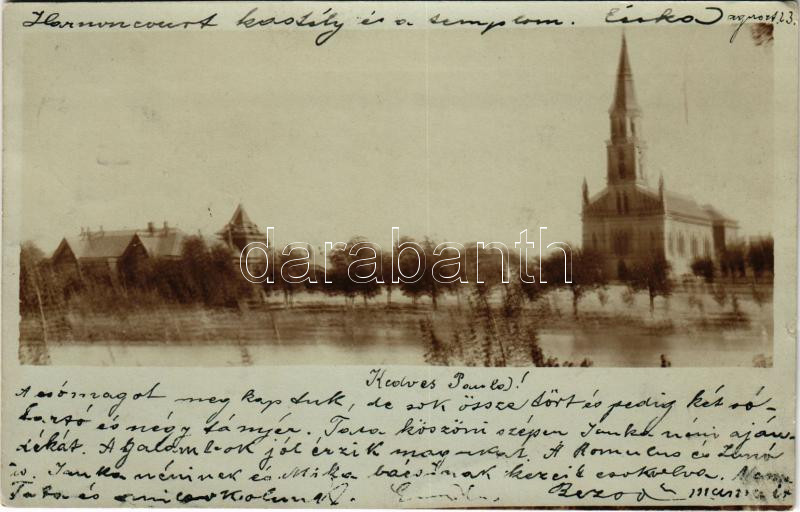 Harnoncourt kastély és a templom. Écska
darabanth.com
Kedves Paula!
A csómagot meg kaptuk, de sok össze tört és pedig két só-
tartó és négy tányér. Tata köszöni szépen Janka néni aján-
dékát. A galambok jól érzik magukat. A Romulus és Zenó
is. Janka néninek és Miksa bácsinak kezeit csókolva.
Tata és